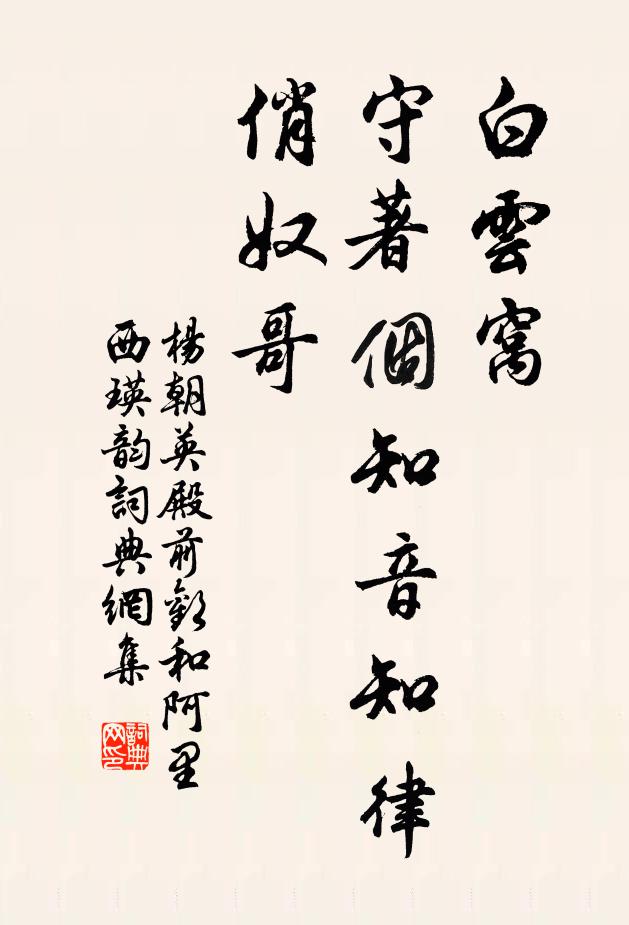 白雲窩
守著個知音知律
俏奴哥
楊朝英殿前歡和阿里
西瑛韵詞典網集
詞典
网印